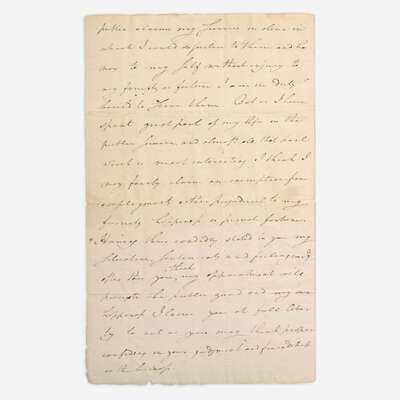 public claims my service in alone in
which I could do justice to them and ho
nor to my self without injury to
my family or fortune I am in duty
bound to them. But as I have
spent great part of my life in the
public service and almost all that
which is most interesting I think I
may fairly claim an exemption from
employment prejudicial to my
family happiness or private fortune.
Having thus candidly stated to you my
situation, sentiments and feelings if
after this you think my appointment will
promote the public good and my own
happiness I leave you at full liber
ty to act as you may think proper
confiding in your judgment and friendship
in the business